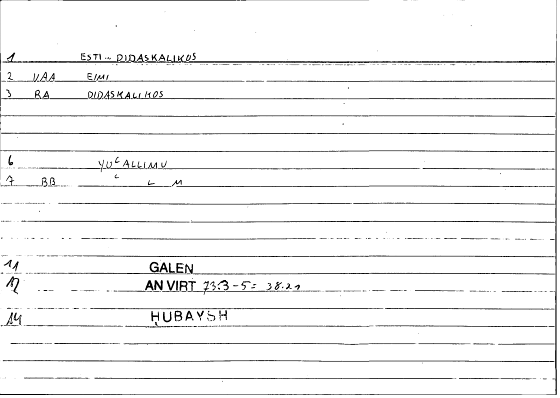 1 ESTI - DIDASKALIKOS
2 VAA EIMI
3 RA DIDASKALIKOS
6 YUᶜALLIMU
7 BB ᶜ L M
11 GALEN
12 AN VIRT 73:3-5 = 38.21
14 ḤUBAYSH